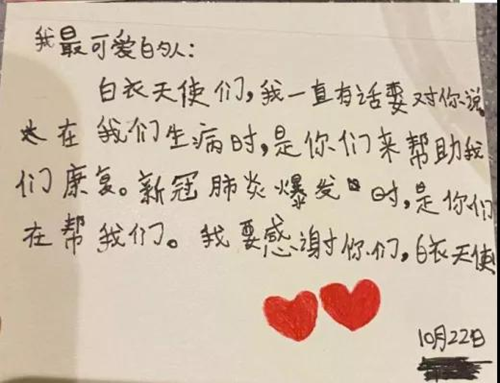 我最可爱的人：
白衣天使们，我一直有话要对你说。
在我们生病时，是你们来帮助我
们康复。新冠肺炎爆发时，是你们
在帮我们。我要感谢你们，白衣天使
10月22日